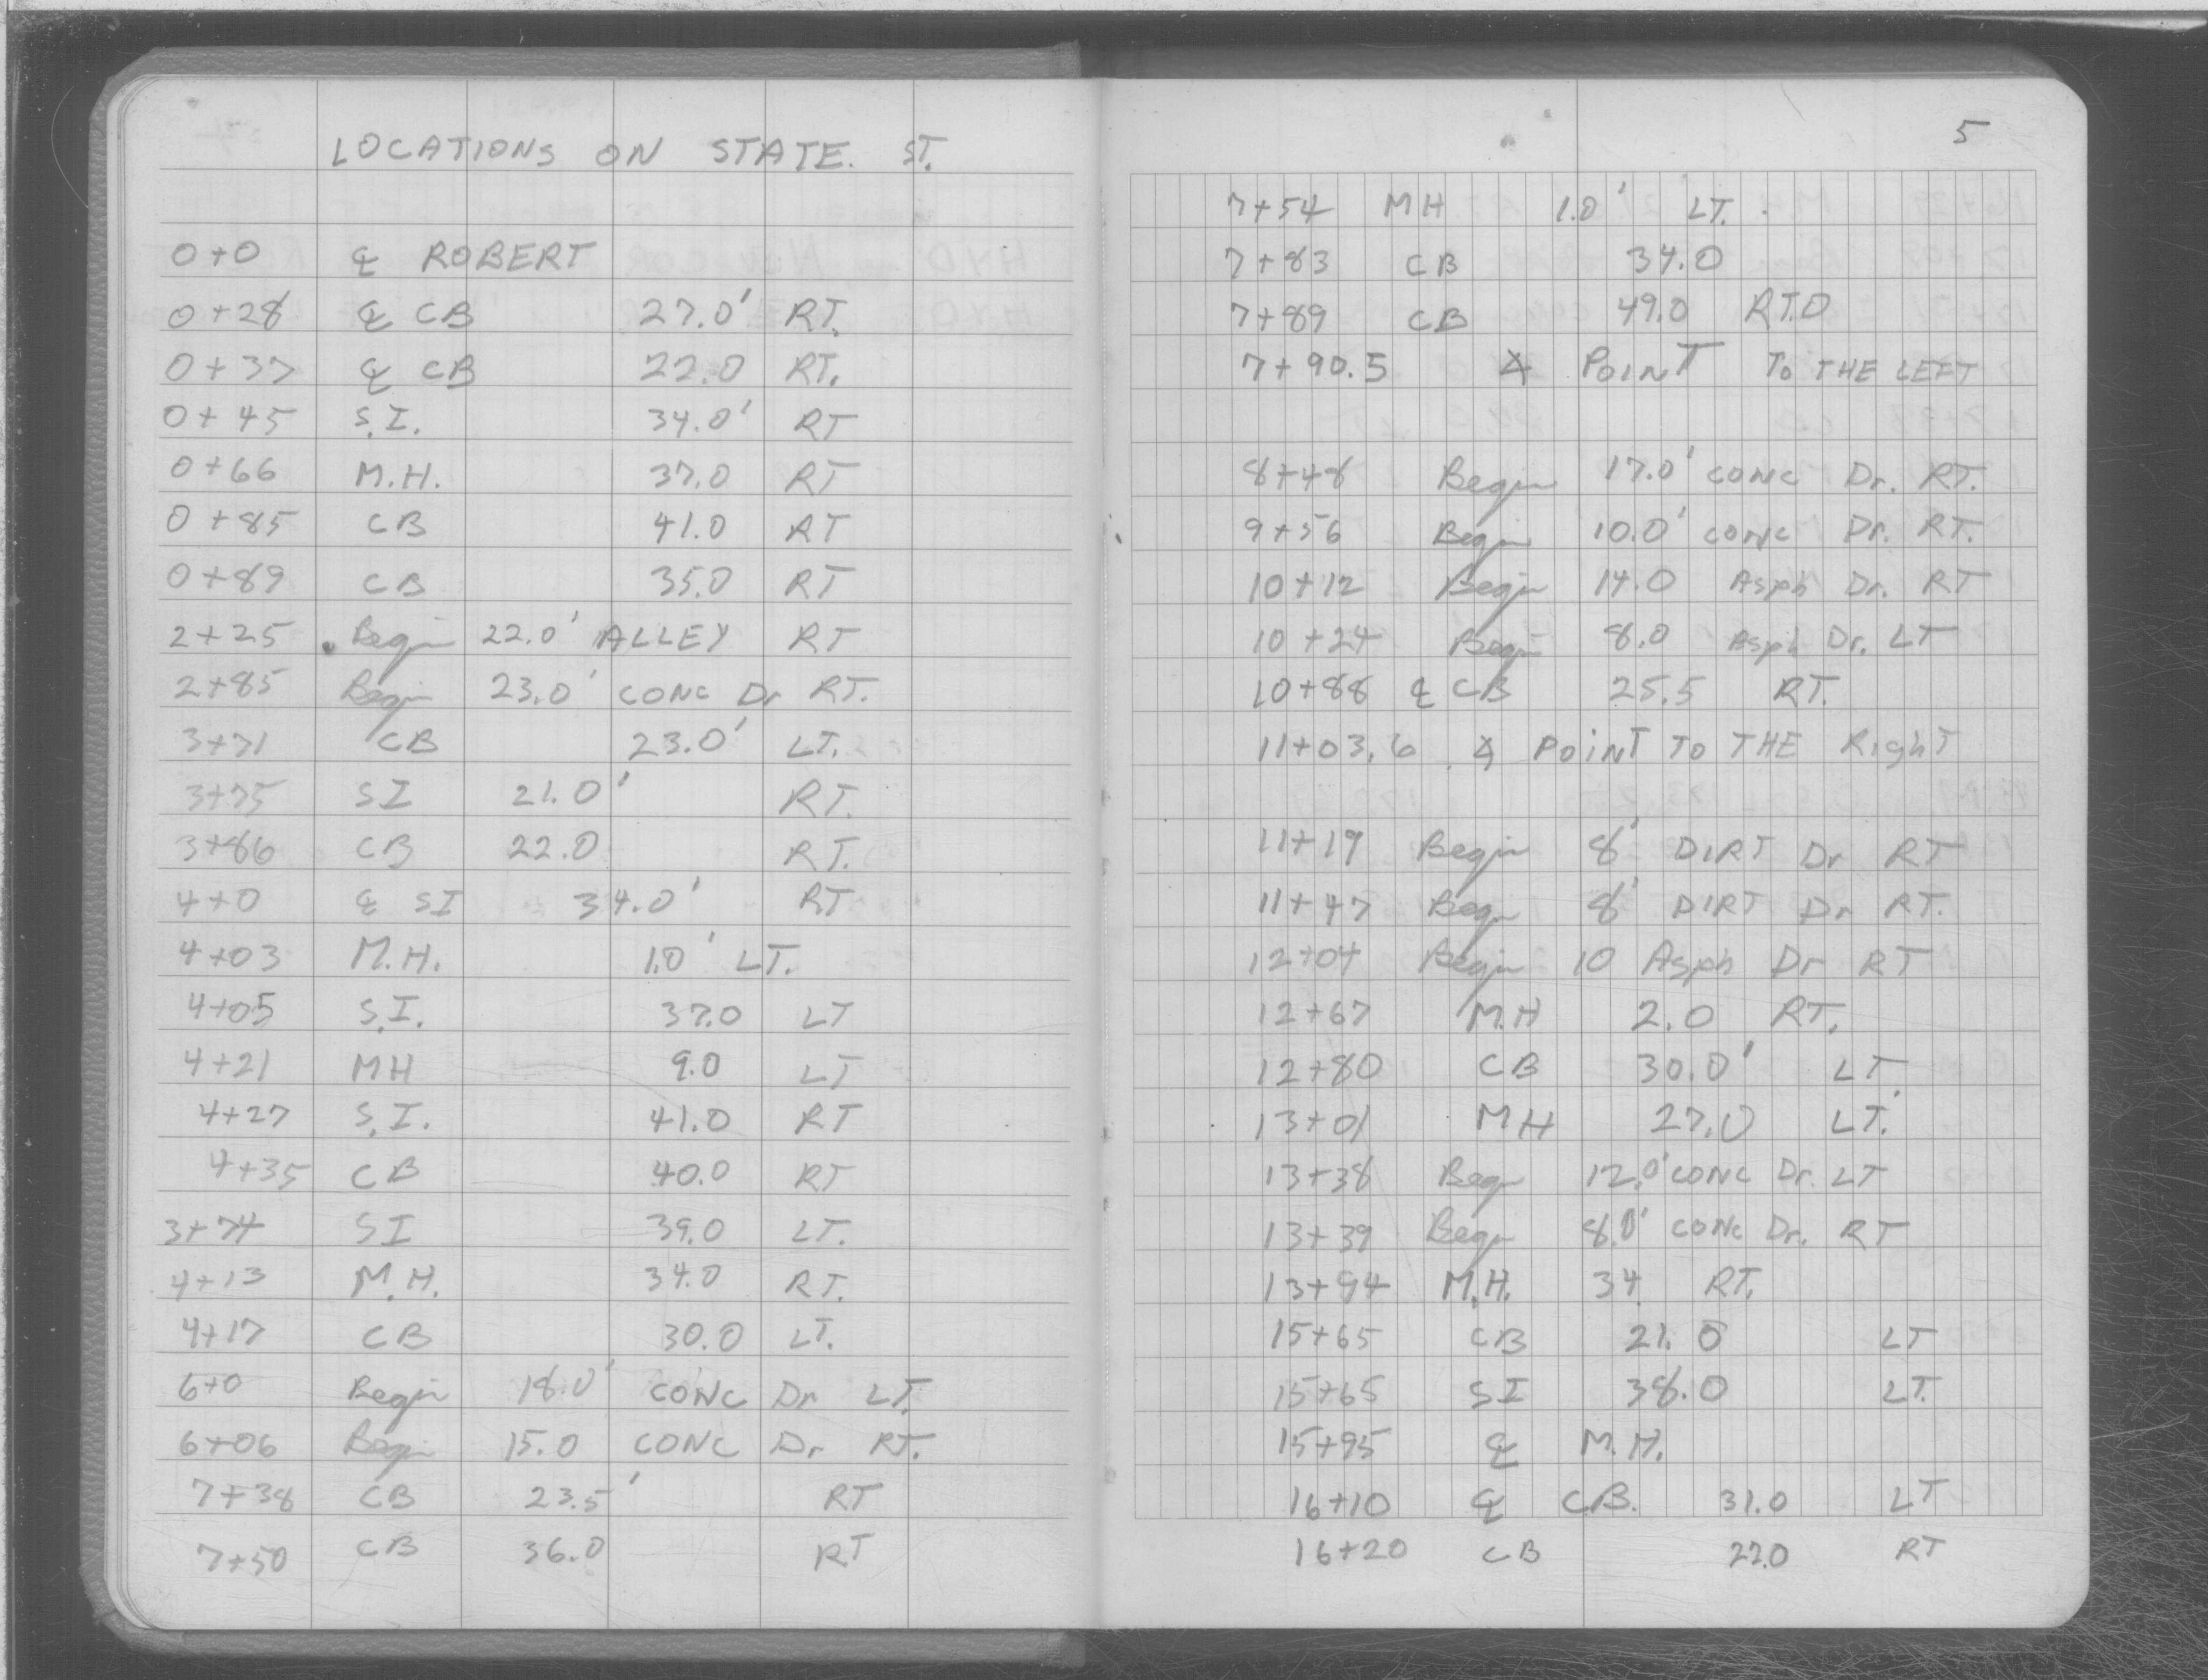 LOCATIONS ON STATE. ST.
0+0 ℄ ROBERT
0+28 ℄ CB 27.0' RT.
0+37 ℄ CB 22.0 RT.
0+45 S.I. 34.0' RT
0+66 M.H. 37.0 RT
0+85 CB 41.0 RT
0+89 CB 35.0 RT
2+25 Begin 22.0' ALLEY RT
2+85 Begin 23.0' CONC Dr RT.
3+71 CB 23.0' LT.
3+75 SI 21.0' RT.
3+86 CB 22.0 RT.
4+0 ℄ SI 34.0' RT
4+03 M.H. 1.0' LT.
4+05 S.I. 37.0 LT
4+21 MH 9.0 LT
4+27 S.I. 41.0 RT
4+35 CB 40.0 RT
3+74 SI 39.0 LT.
4+13 M.H. 34.0 RT.
4+17 CB 30.0 LT.
6+0 Begin 18.0' CONC Dr LT.
6+06 Begin 15.0 CONC Dr RT.
7+38 CB 23.5' RT
7+50 CB 36.0 RT
5
7+54 MH 1.0' LT.
7+83 CB 34.0
7+89 CB 49.0 RT.0
7+90.5 ∠ POINT To THE LEFT
8+48 Begin 17.0' CONC Dr. RT.
9+56 Begin 10.0' CONC Dr. RT.
10+12 Begin 14.0 Asph Dr. RT
10+24 Begin 8.0 Asph Dr. LT
10+88 ℄ CB 25.5 RT.
11+03.6 ∠ POINT TO THE RighT
11+19 Begin 8' DIRT Dr RT
11+47 Begin 8' DIRT Dr RT.
12+04 Begin 10 Asph Dr RT
12+67 M.H 2.0 RT.
12+80 CB 30.0' LT.
13+01 MH 27.0 LT.
13+38 Begin 12.0' CONC Dr. LT
13+39 Begin 8.0' CONC Dr. RT
13+94 M.H. 34 RT.
15+65 CB 21.0 LT
15+65 SI 38.0 LT.
15+95 ℄ M.H.
16+10 ℄ CB. 31.0 LT
16+20 CB 22.0 RT